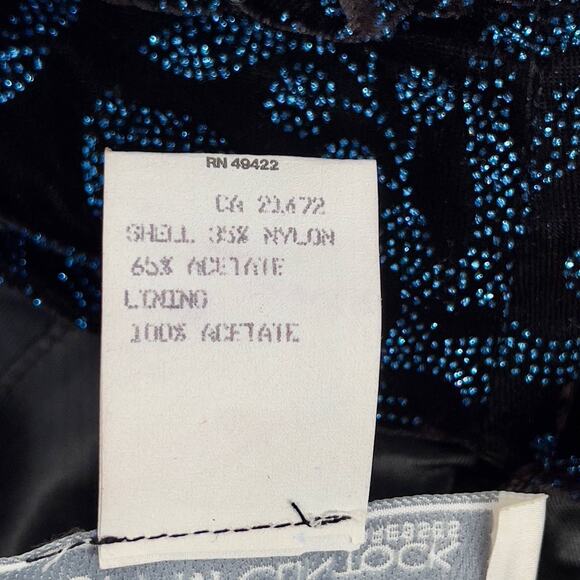 RN 49422
CA 21472
SHELL 35% NYLON
65% ACETATE
LINING
100% ACETATE